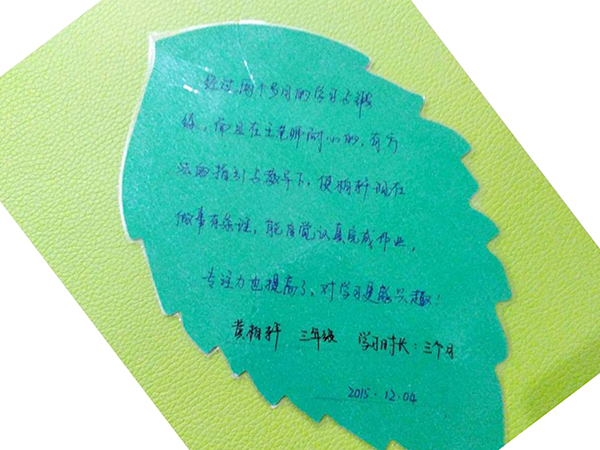 经过两个多月的学习与锻
练，而且在王老师耐心的，有方
法的指引与教导下，使柏轩现在
做事有条理，能自觉认真完成作业，
专注力也提高了，对学习更感兴趣！
黄柏轩 三年级 学习时长：三个月
2015.12.04